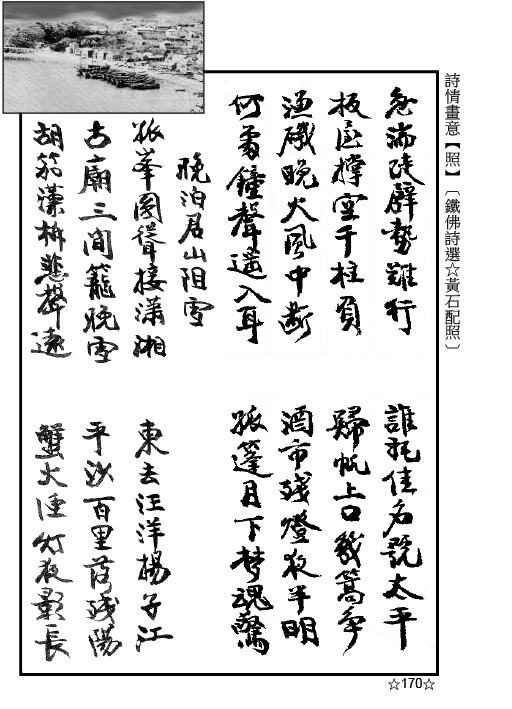 詩情畫意【照】〔鐵佛詩選☆黃石配照〕
急湍陡壁勢難行
誰托佳名號太平
板屋撐空千柱負
歸帆上口幾篙爭
漁磯晚火風中斷
酒市殘燈夜半明
何處鐘聲遙入耳
孤篷月下梦魂驚
晚泊君山阻雪
孤峯圍聳接瀟湘
東去汪洋揚子江
古廟三間籠晚雪
平沙百里落殘陽
胡笳漢柝悲聲遠
蟹火漁灯夜影長
☆170☆